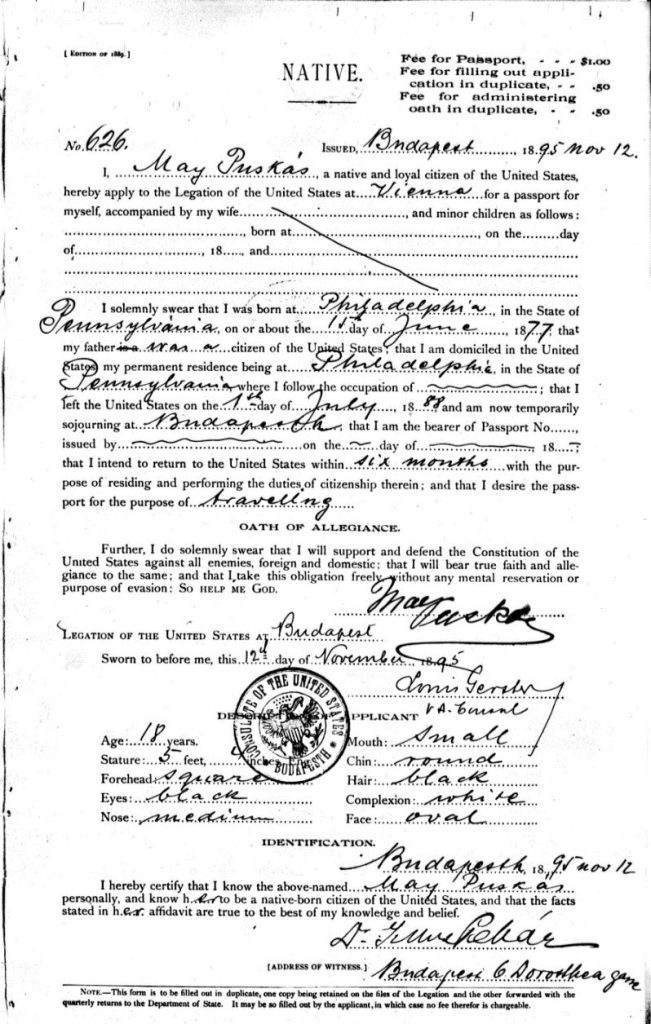 [ EDITION OF 1889. ]
NATIVE.
Fee for Passport, - - - $1.00
Fee for filling out appli-
cation in duplicate, - - .50
Fee for administering
oath in duplicate, - - .50
No. 626. ISSUED, Budapest, 1895 nov 12.
I, May Puskás, a native and loyal citizen of the United States,
hereby apply to the Legation of the United States at Vienna for a passport for
myself, accompanied by my wife, and minor children as follows:
, born at, on the day
of, 18, and
I solemnly swear that I was born at Philadelphia, in the State of
Pennsylvania, on or about the 1st day of June, 1877, that
my father is a was a citizen of the United States; that I am domiciled in the United
States, my permanent residence being at Philadelphia, in the State of
Pennsylvania where I follow the occupation of; that I
left the United States on the 1th day of July, 1888 and am now temporarily
sojourning at Budapesth, that I am the bearer of Passport No.,
issued by on the day of, 18;
that I intend to return to the United States within six months with the pur-
pose of residing and performing the duties of citizenship therein; and that I desire the pass-
port for the purpose of travelling
OATH OF ALLEGIANCE.
Further, I do solemnly swear that I will support and defend the Constitution of the
United States against all enemies, foreign and domestic; that I will bear true faith and alle-
giance to the same; and that I take this obligation freely, without any mental reservation or
purpose of evasion: SO HELP ME GOD.
May Puskás
LEGATION OF THE UNITED STATES AT Budapest
Sworn to before me, this 12th day of November 1895
Louis Gerster
V A. Consul
CONSULATE OF THE UNITED STATES
BUDAPESTH
APPLICANT
Age: 18 years. Mouth: small
Stature: 5 feet, inches Chin: round
Forehead: square Hair: black
Eyes: black Complexion: white
Nose: medium Face: oval
IDENTIFICATION.
Budapesth, 1895 nov 12
I hereby certify that I know the above-named May Puskás
personally, and know her to be a native-born citizen of the United States, and that the facts
stated in her affidavit are true to the best of my knowledge and belief.
Dr
[ADDRESS OF WITNESS.] Budapest 6 Dorothea gasse
NOTE.—This form is to be filled out in duplicate, one copy being retained on the files of the Legation and the other forwarded with the
quarterly returns to the Department of State. It may be so filled out by the applicant, in which case no fee therefor is chargeable.